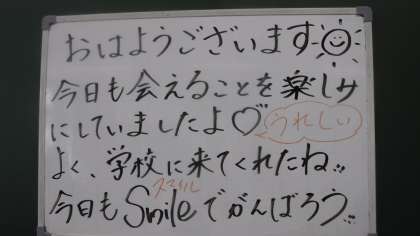 おはようございます
今日も会えることを楽しみ
にしていましたよ♡うれしい
よく、学校に来てくれたね!!
スマイル
今日もSmileでがんばろう!!